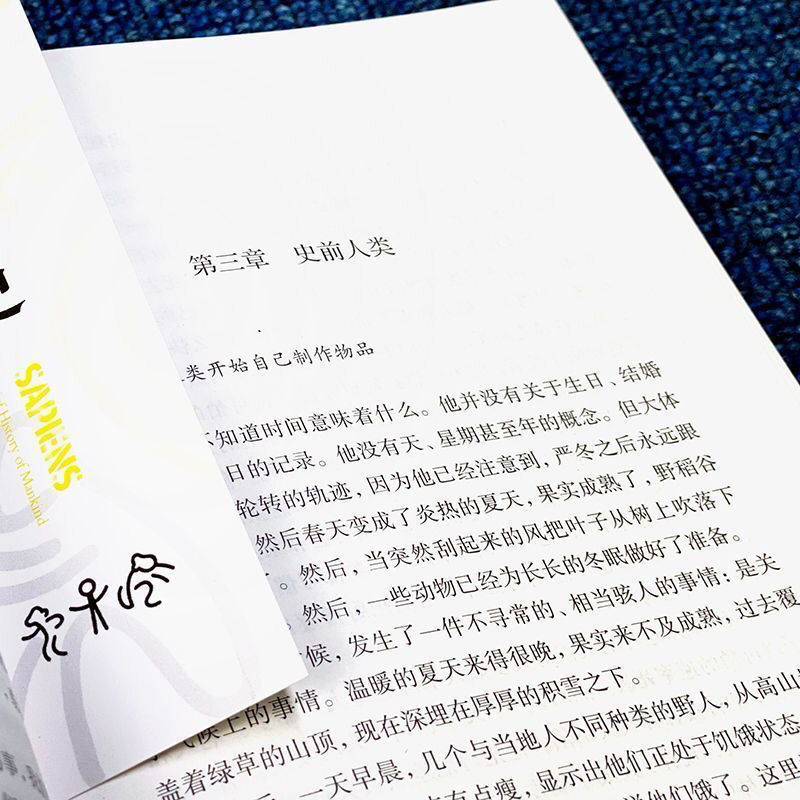 SAPIENS
History of Mankind
第三章 史前人类
类开始自己制作物品
知道时间意味着什么。他并没有关于生日、结婚
日的记录。他没有天、星期甚至年的概念。但大体
轮转的轨迹，因为他已经注意到，严冬之后永远跟
然后春天变成了炎热的夏天，果实成熟了，野稻谷
。然后，当突然刮起来的风把叶子从树上吹落下
然后，一些动物已经为长长的冬眠做好了准备。
候，发生了一件不寻常的、相当骇人的事情：是关
气候上的事情。温暖的夏天来得很晚，果实来不及成熟，过去覆
盖着绿草的山顶，现在深埋在厚厚的积雪之下。
一天早晨，几个与当地人不同种类的野人，从高山
有点瘦，显示出他们正处于饥饿状态
他们饿了。这里